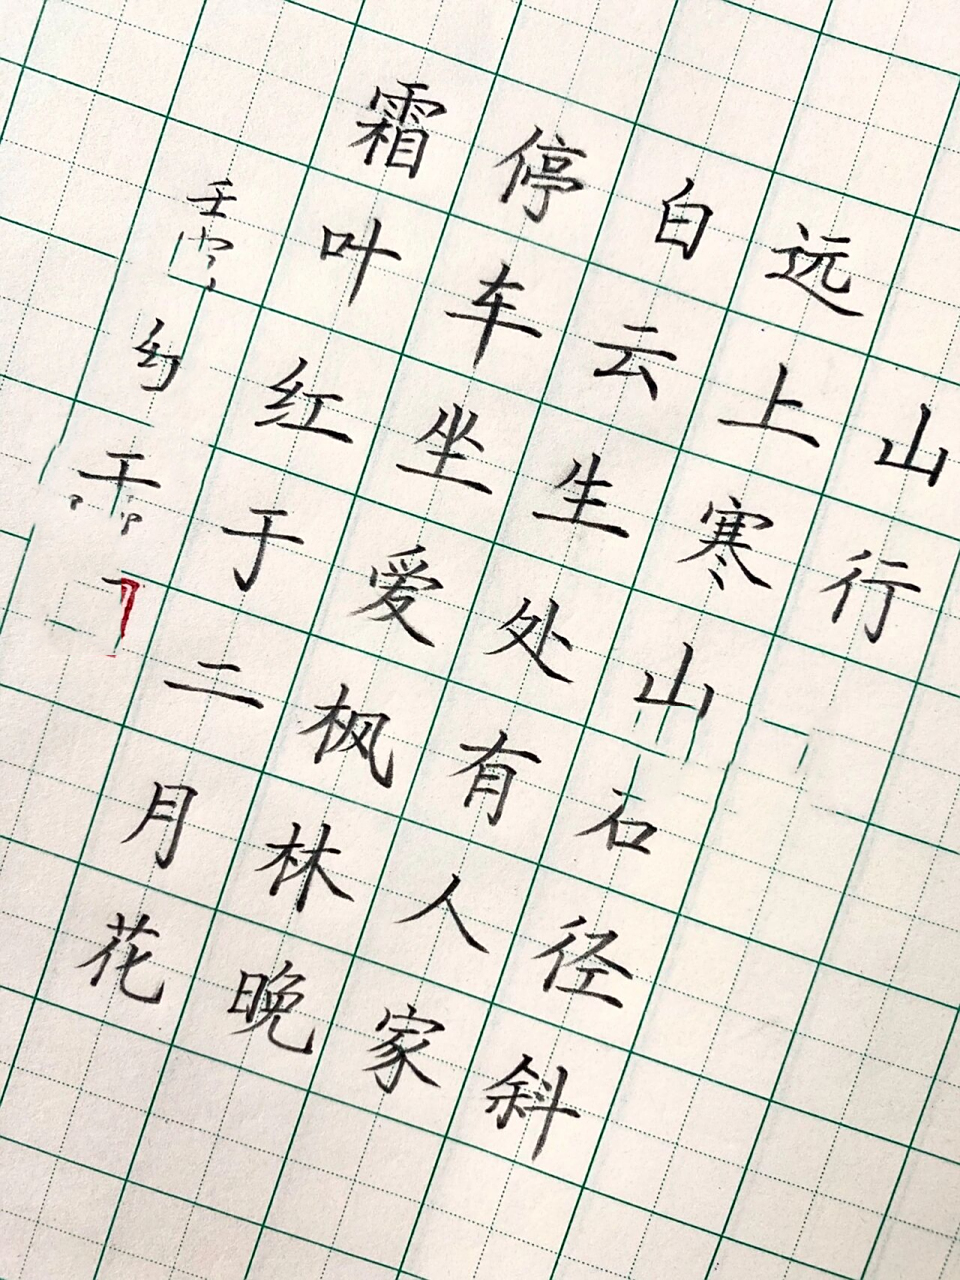 山行
远上寒山石径斜
白云生处有人家
停车坐爱枫林晚
霜叶红于二月花